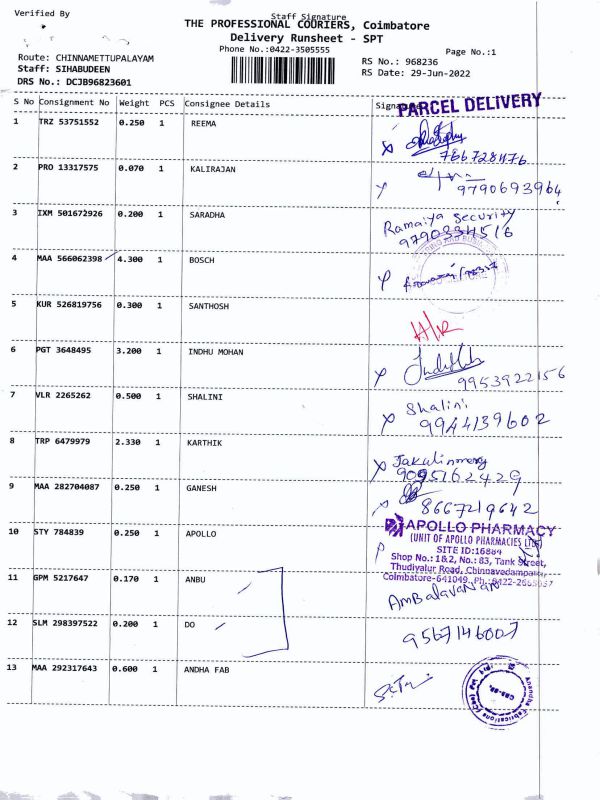 Verified By
Staff Signature
THE PROFESSIONAL COURIERS, Coimbatore
Delivery Runsheet - SPT
Phone No.:0422-3505555
Page No.:1
Route: CHINNAMETTUPALAYAM
Staff: SIHABUDEEN
DRS No.: DCJB96823601
RS No.: 968236
RS Date: 29-Jun-2022
S No Consignment No Weight PCS Consignee Details Signature
PARCEL DELIVERY
1 TRZ 53751552 0.250 1 REEMA
766728476
2 PRO 13317575 0.070 1 KALIRAJAN
9790693964
3 IXM 501672926 0.200 1 SARADHA Ramaiya Security
9790334516
4 MAA 566062398 4.300 1 BOSCH
5 KUR 526819756 0.300 1 SANTHOSH
H/R
6 PGT 3648495 3.200 1 INDHU MOHAN
9953922156
7 VLR 2265262 0.500 1 SHALINI Shalini
9944139602
8 TRP 6479979 2.330 1 KARTHIK
Jakulinmery
9095162429
9 MAA 282704087 0.250 1 GANESH
8667219642
10 STY 784839 0.250 1 APOLLO
APOLLO PHARMACY
(UNIT OF APOLLO PHARMACIES LTD)
SITE ID:16884
Shop No.: 1&2, No.: 83, Tank Street,
Thudiyalur Road, Chinnavedampatty
Coimbatore-641049. Ph.:0422-2665037
11 GPM 5217647 0.170 1 ANBU
AmBalavanan
12 SLM 298397522 0.200 1 DO
9567146007
13 MAA 292317643 0.600 1 ANDHA FAB